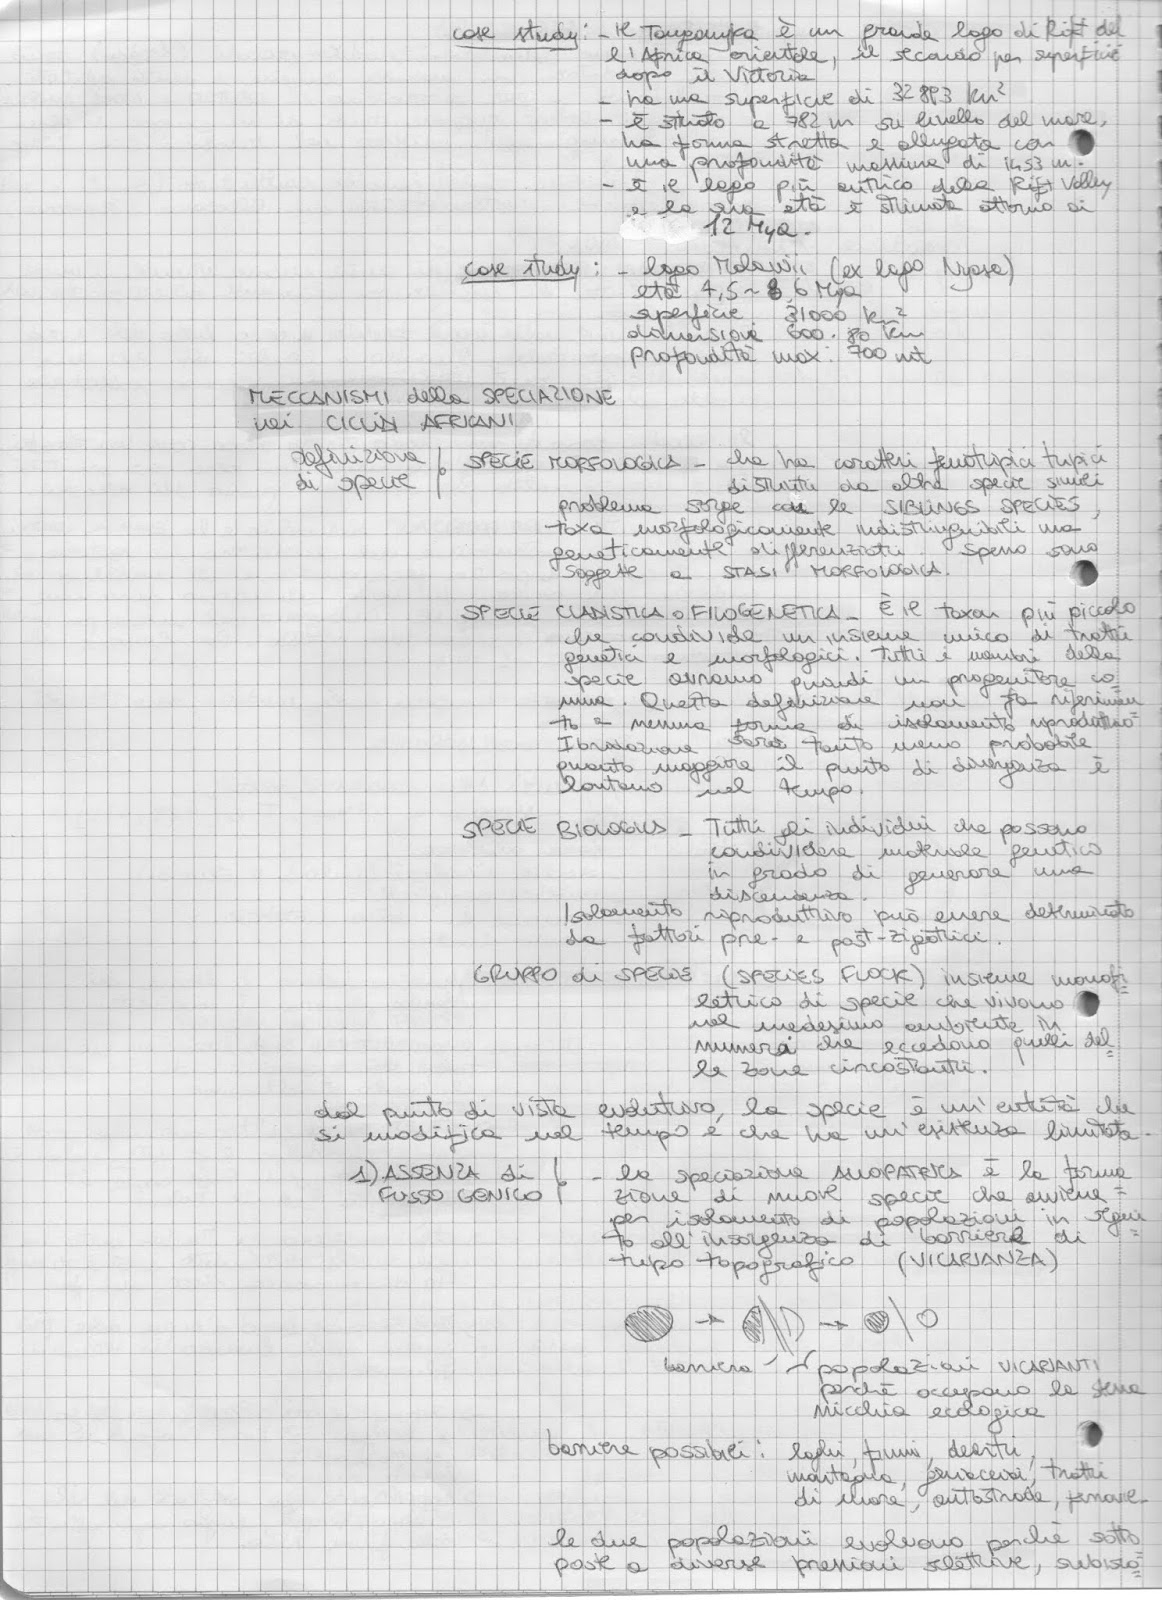 case study: - il Tanganyka è un grande lago di Rift del
l'Africa orientale, il secondo per superficie
dopo il Victoria
- ha una superficie di 32893 km²
- è situato a 782 m su livello del mare,
ha forma stretta e allungata con
una profondità massima di 1453 m.
- è il lago più antico della Rift Valley
e la sua età è stimata attorno ai
12 Mya.
case study: - lago Malawii (ex lago Nyasa)
età 4,5 ~ 8,6 Mya
superficie 31000 km²
dimensioni 600 · 80 km
profondità max: 700 mt
MECCANISMI della SPECIAZIONE
nei CICLIDI AFRICANI
definizione
di specie
SPECIE MORFOLOGICA - che ha caratteri fenotipici tipici
distinti da altre specie simili
problema sorge con le SIBLINGS SPECIES,
taxa morfologicamente indistinguibili ma
geneticamente differenziati. Spesso sono
soggette a STASI MORFOLOGICA.
SPECIE CLADISTICA o FILOGENETICA - È il taxon più piccolo
che condivide un insieme unico di tratti
genetici e morfologici. Tutti i membri della
specie avranno quindi un progenitore co
mune. Questa definizione non fa riferimen
to a nessuna forma di isolamento riproduttivo=
Ibridazione sarà tanto meno probabile
quanto maggiore il punto di divergenza è
lontano nel tempo.
SPECIE BIOLOGICA - Tutti gli individui che possono
condividere materiale genetico
in grado di generare una
discendenza.
Isolamento riproduttivo può essere determinato
da fattori pre- e post-zigotici.
GRUPPO di SPECIE (SPECIES FLOCK) insieme monofi=
letico di specie che vivono
nel medesimo ambiente in
numero che eccedono quelli del=
le zone circostanti.
dal punto di vista evolutivo, la specie è un'entità che
si modifica nel tempo e che ha un'esistenza limitata.
1) ASSENZA di
FUSSO GENICO
- la speciazione ALLOPATRICA è la forma
zione di nuove specie che avviene=
per isolamento di popolazioni in segui=
to all'insorgenza di barriere di
tipo topografico (VICARIANZA)
barriera
popolazioni VICARIANTI
perchè occupano la stessa
nicchia ecologica
barriere possibili: laghi, fiumi, deserti,
montagna, ghiacciai, tratti
di mare, autostrade,
le due popolazioni evolvono perchè sotto
poste a diverse pressioni selettive, subisco=